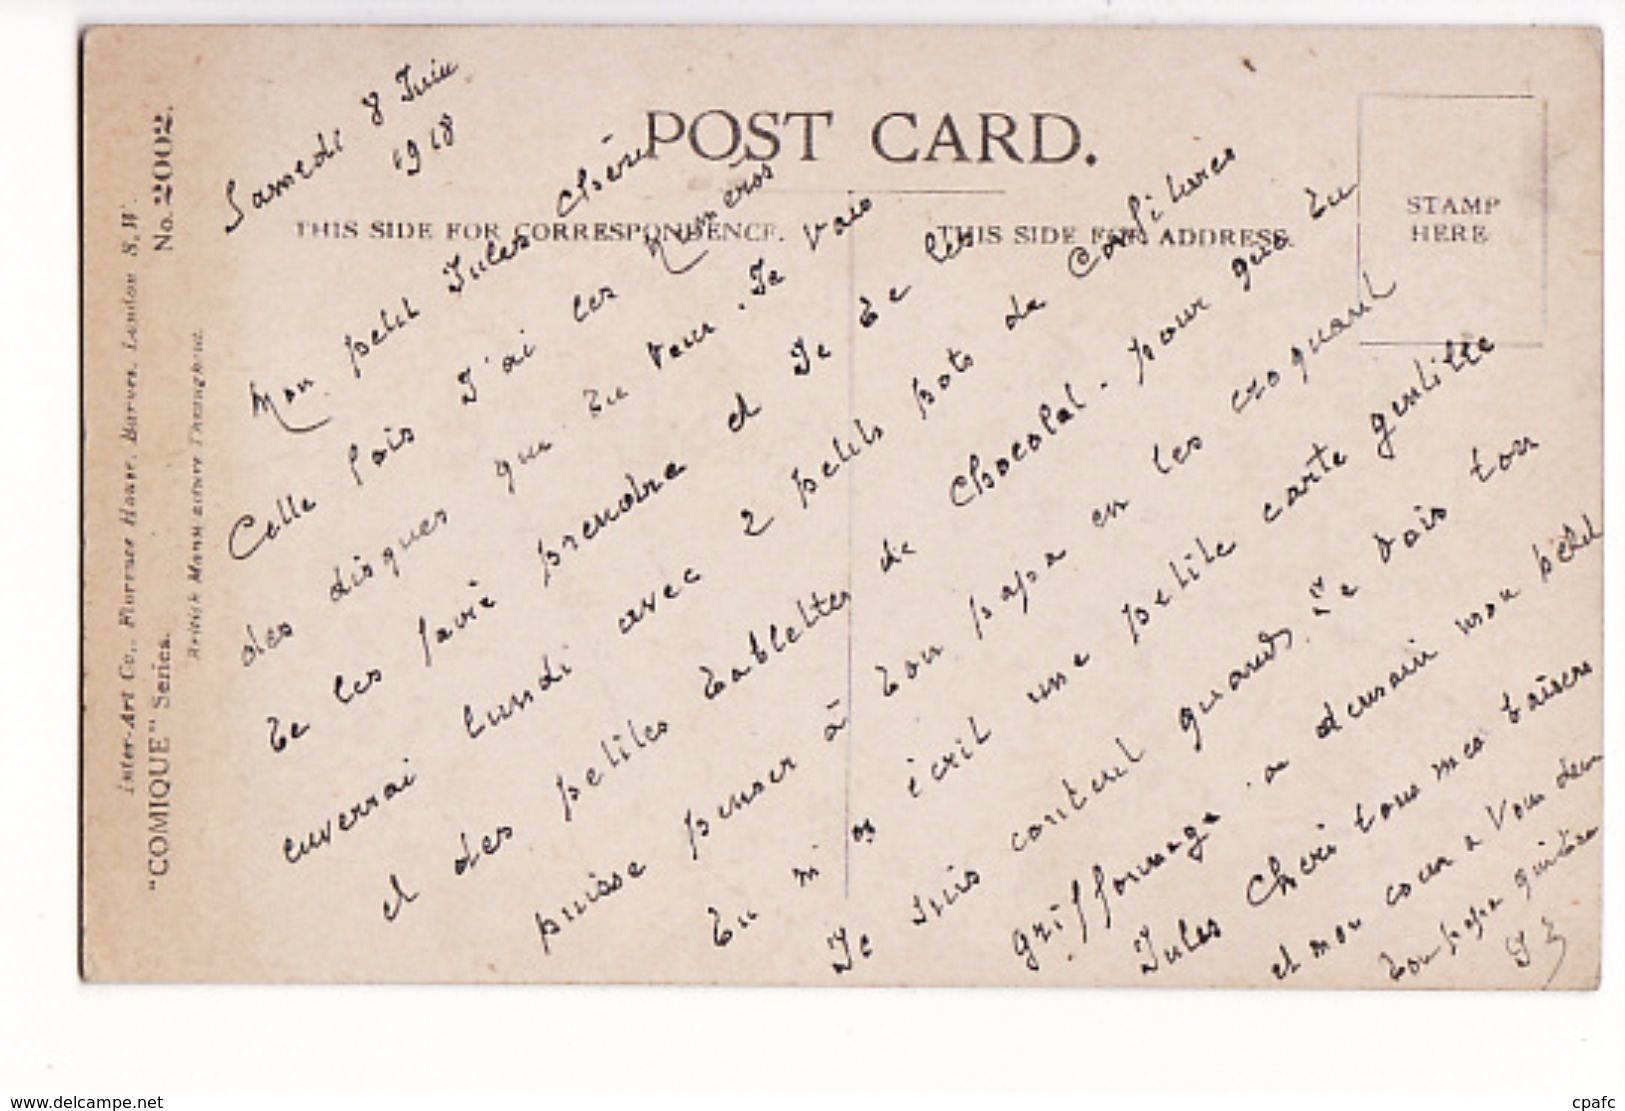 POST CARD.
THIS SIDE FOR CORRESPONDENCE.
THIS SIDE FOR ADDRESS.
STAMP
HERE
Inter-Art Co., Florence House, Barnes, London S.W.
"COMIQUE" Series.
No. 2002.
British Manufacture Throughout.
Samedi 8 Juin
1918
Mon petit Jules chéri
Cette fois J'ai les Numéros
des disques que tu veux. Je vais
te les faire prendre et Je te les
enverrai lundi avec 2 petits pots de Confitures
et des petites tablettes de Chocolat. pour que tu
puisse penser à ton papa en les croquant
Tu m'as écrit une petite carte gentille
Je suis content quand Je vais ton
griffonnage. a demain mon petit
Jules Cheri tous mes baisers
et mon cœur a Vous deux
ton papa qui
J
www.delcampe.net
cpafc